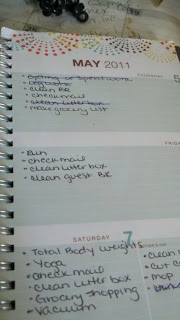 MAY 2011
THURSDAY 5
• cycling or speed work
• yoga
• clean BR
• check mail
• clean litter box
• make grocery list
FRIDAY
• Run
• check mail
• clean litter box
• clean guest BR
SATURDAY 7
• Total Body weights
• Yoga
• check mail
• clean litter box
• Grocery shopping
• vacuum
• clean
• cut
• mop